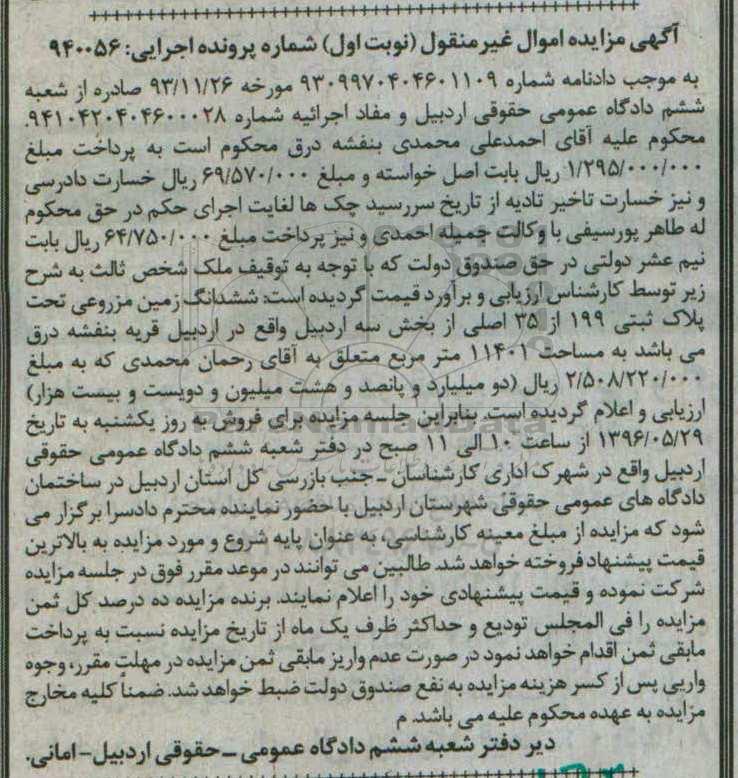 آگهی مزایده اموال غیر منقول (نوبت اول) شماره پرونده اجرایی: ۹۴۰۰۵۶
به موجب دادنامه شماره ۹۳۰۹۹۷۰۴۰۴۶۰۱۱۰۹ مورخه ۹۳/۱۱/۲۶ صادره از شعبه
ششم دادگاه عمومی حقوقی اردبیل و مفاد اجرائیه شماره ۹۴۱۰۴۲۰۴۰۴۶۰۰۰۲۸.
محکوم علیه آقای احمدعلی محمدی بنفشه درق محکوم است به پرداخت مبلغ
۱/۲۹۵/۰۰۰/۰۰۰ ریال بابت اصل خواسته و مبلغ ۶۹/۵۷۰/۰۰۰ ریال خسارت دادرسی
و نیز خسارت تاخیر تادیه از تاریخ سررسید چک ها لغایت اجرای حکم در حق محکوم
له طاهر پورسیفی با وکالت جمیله احمدی و نیز پرداخت مبلغ ۶۴/۷۵۰/۰۰۰ ریال بابت
نیم عشر دولتی در حق صندوق دولت که با توجه به توقیف ملک شخص ثالث به شرح
زیر توسط کارشناس ارزیابی و برآورد قیمت گردیده است: ششدانگ زمین مزروعی تحت
پلاک ثبتی ۱۹۹ از ۳۵ اصلی از بخش سه اردبیل واقع در اردبیل قریه بنفشه درق
می باشد به مساحت ۱۱۴۰۱ متر مربع متعلق به آقای رحمان محمدی که به مبلغ
۲/۵۰۸/۲۲۰/۰۰۰ ریال (دو میلیارد و پانصد و هشت میلیون و دویست و بیست هزار)
ارزیابی و اعلام گردیده است. بنابراین جلسه مزایده برای فروش به روز یکشنبه به تاریخ
۱۳۹۶/۰۵/۲۹ از ساعت ۱۰ الی ۱۱ صبح در دفتر شعبه ششم دادگاه عمومی حقوقی
اردبیل واقع در شهرک اداری کارشناسان - جنب بازرسی کل استان اردبیل در ساختمان
دادگاه های عمومی حقوقی شهرستان اردبیل با حضور نماینده محترم دادسرا برگزار می
شود که مزایده از مبلغ معینه کارشناسی به عنوان پایه شروع و مورد مزایده به بالاترین
قیمت پیشنهاد فروخته خواهد شد. طالبین می توانند در موعد مقرر فوق در جلسه مزایده
شرکت نموده و قیمت پیشنهادی خود را اعلام نمایند. برنده مزایده ده درصد کل ثمن
مزایده را فی المجلس تودیع و حداکثر ظرف یک ماه از تاریخ مزایده نسبت به پرداخت
مابقی ثمن اقدام خواهد نمود در صورت عدم واریز مابقی ثمن مزایده در مهلت مقرر، وجوه
واریی پس از کسر هزینه مزایده به نفع صندوق دولت ضبط خواهد شد. ضمناً کلیه مخارج
مزایده به عهده محکوم علیه می باشد. م
دیر دفتر شعبه ششم دادگاه عمومی - حقوقی اردبیل - امانی.